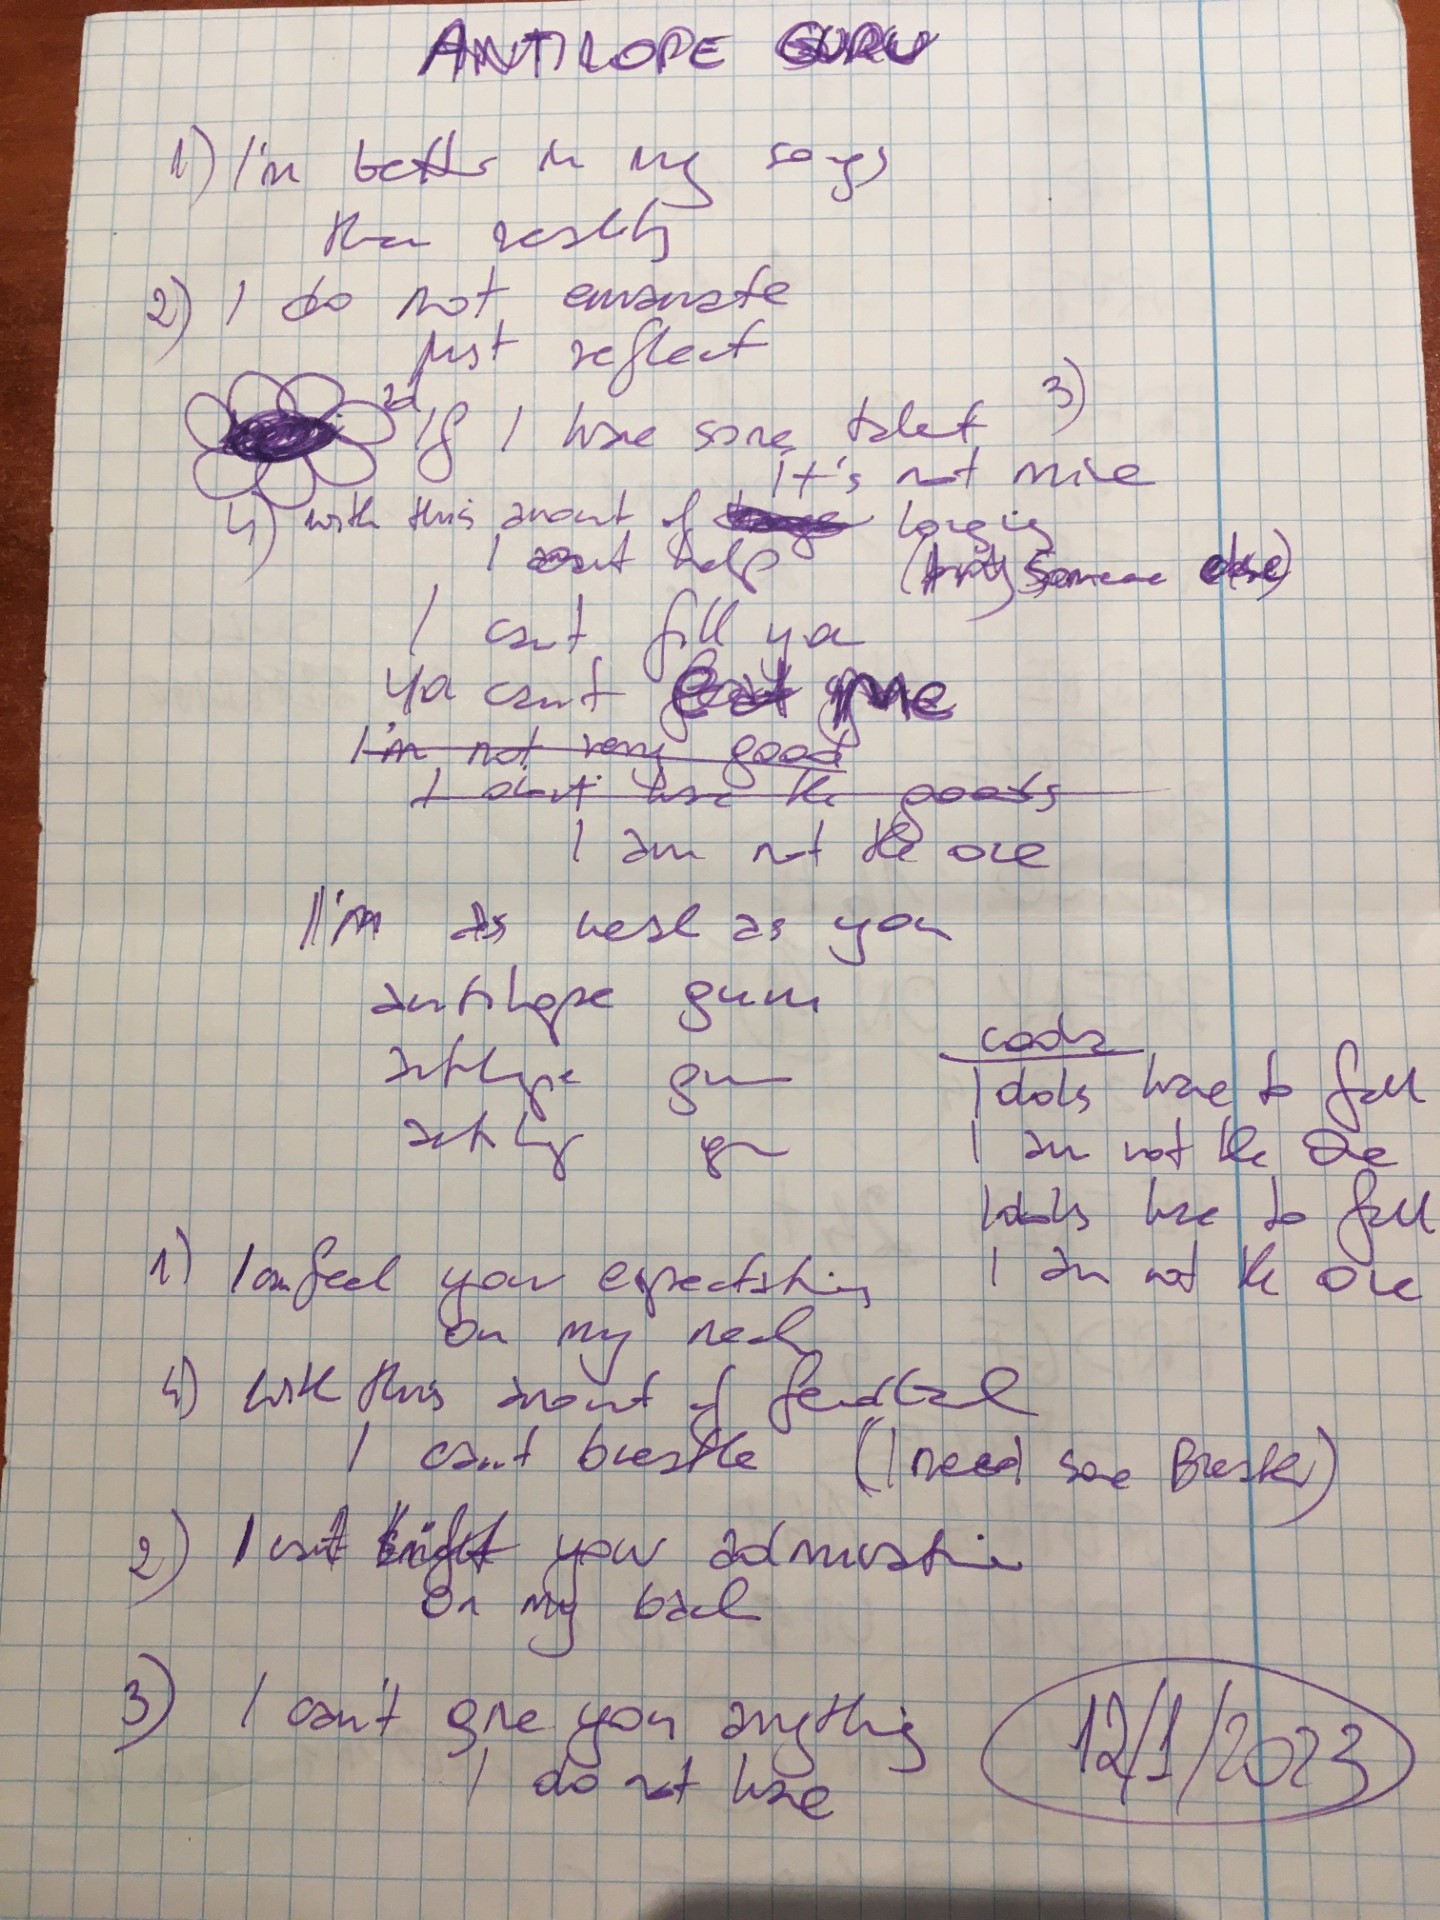 ANTILOPE GURU
1) I'm better in my songs
than reality
2) I do not emanate
just reflect
If I have some talent 3)
it's not mine
4) with this amount of longing
I can't help (try someone else)
I can't fill you
You can't eat me
I'm not very good
I don't have the goods
I am not the one
I'm as weak as you
antilope guru
antilope guru
antilope guru
coda
Idols have to fall
I am not the One
Idols have to fall
I am not the One
1) I can feel your expectations
on my neck
4) with this amount of feedback
I can't breathe (I need some Breaths)
2) I can't your admiration
on my back
3) I can't give you anything
I do not have
12/1/2023